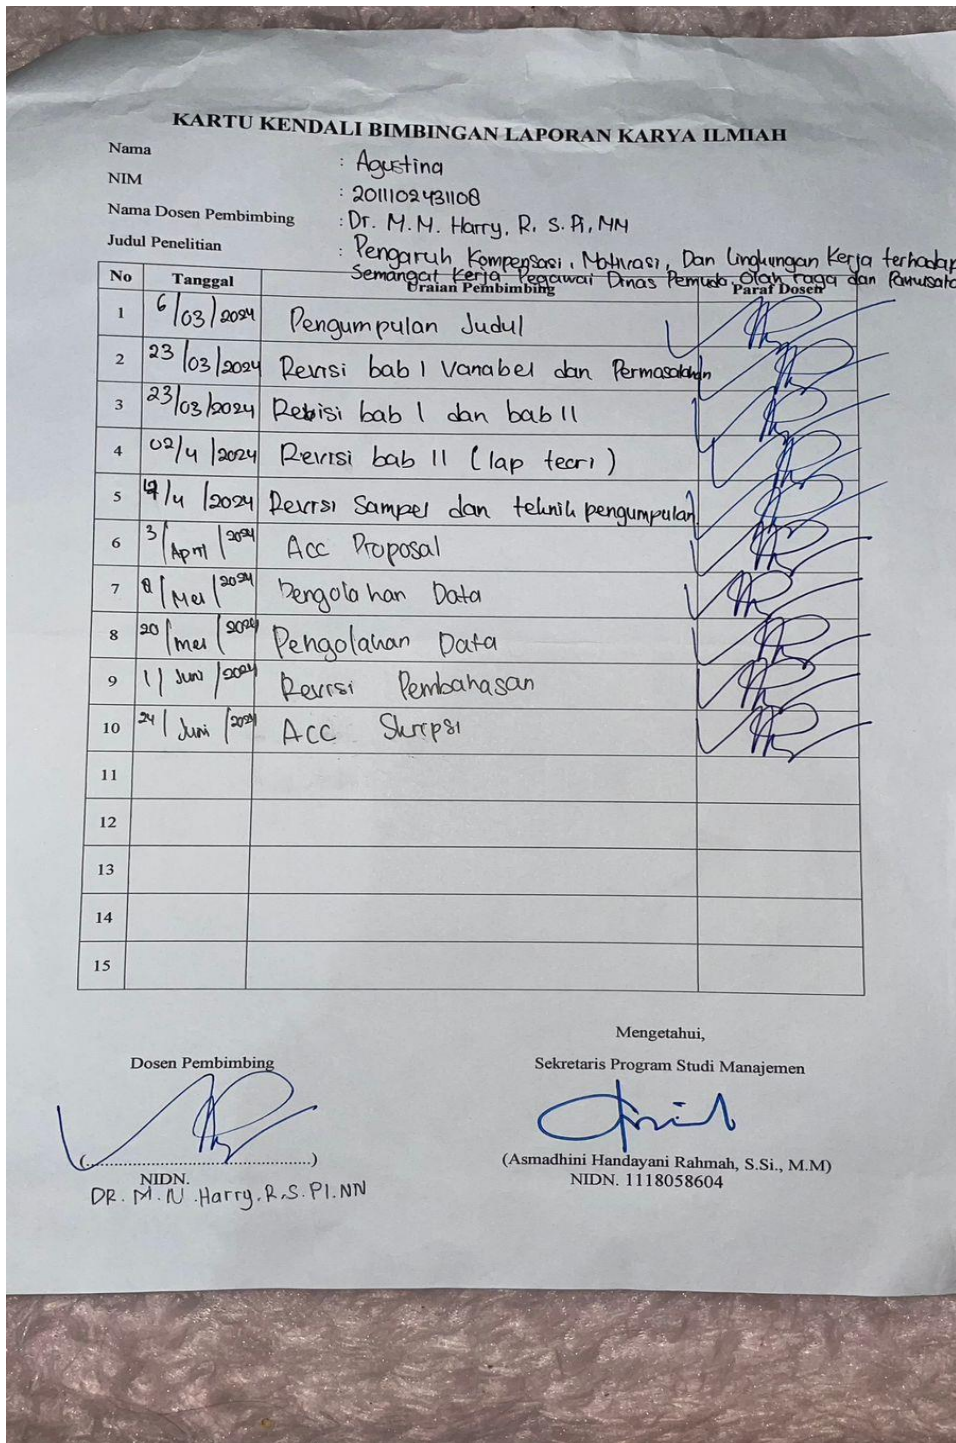 KARTU KENDALI BIMBINGAN LAPORAN KARYA ILMIAH
Nama : Agustina
NIM : 2011102431108
Nama Dosen Pembimbing : Dr. M.M. Harry, R. S. Pi, MM
Judul Penelitian : Pengaruh Kompensasi, Motivasi, Dan Lingkungan Kerja terhadap
Semangat Kerja Pegawai Dinas Pemuda Olah raga dan Pariwisata
No Tanggal Uraian Pembimbing Paraf Dosen
1 6/03/2024 Pengumpulan Judul
2 23/03/2024 Revisi bab I Variabel dan Permasalahan
3 23/03/2024 Revisi bab I dan bab II
4 02/4/2024 Revisi bab II (lap teori)
5 /4/2024 Revisi Sampel dan teknik pengumpulan
6 3/April/2024 Acc Proposal
7 /Mei/2024 Pengolahan Data
8 20/mei/2024 Pengolahan Data
9 11/Juni/2024 Revisi Pembahasan
10 24/Juni/2024 ACC Skripsi
11
12
13
14
15
Mengetahui,
Dosen Pembimbing Sekretaris Program Studi Manajemen
(..............................................) (Asmadhini Handayani Rahmah, S.Si., M.M)
NIDN. NIDN. 1118058604
DR. M.N.Harry.R.S.PI.NN